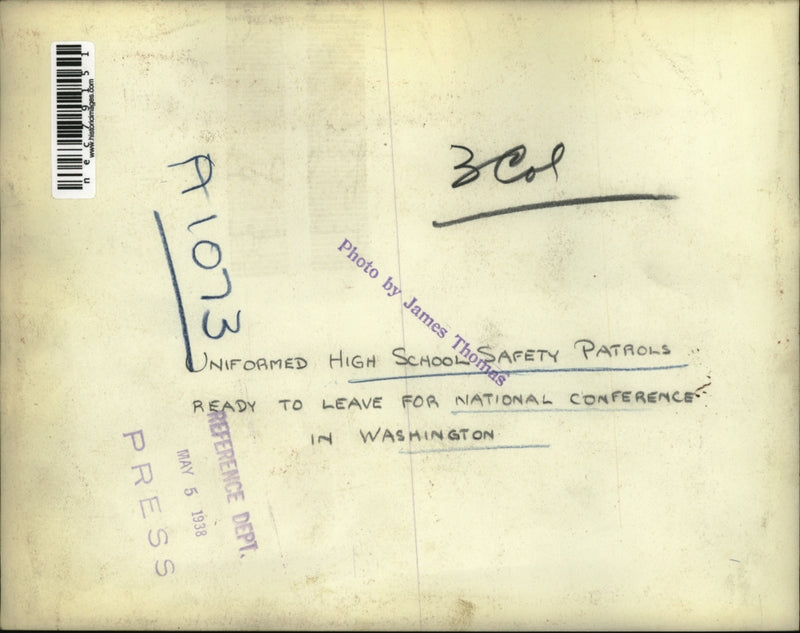 nec79151
www.historicimages.com
A1073
3 Col
Photo by James Thomas
UNIFORMED HIGH SCHOOL SAFETY PATROLS
READY TO LEAVE FOR NATIONAL CONFERENCE
IN WASHINGTON
REFERENCE DEPT.
MAY 5 1938
PRESS